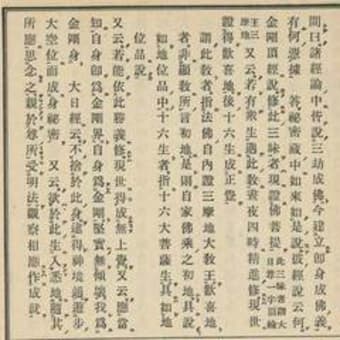 問曰諸經論中皆說三劫成佛今建立即身成佛義
有何憑據　答祕密藏中如來如是說彼經說云何
金剛頂經說修此三昧者現證佛菩提此三昧者謂大日尊一字頂輪
王三摩地又云若有衆生遇此教晝夜四時精進修現世
證得歡喜地後十六生成正覺
謂此教者指法佛自內證三摩地大教王歡喜地
者非顯教所言初地是則自家佛乘之初地具說
如地位品中十六生者指十六大菩薩生具如地
位品說
又云若能依此勝義修現世得成無上覺又云應當
知自身即爲金剛界自身爲金剛堅實無傾壞我爲
金剛身　大日經云不捨於此身逮得神境通遊步
大空位而成身祕密　又云欲於此生入悉地隨其
所應思念之親於尊所受明法觀察相應作成就